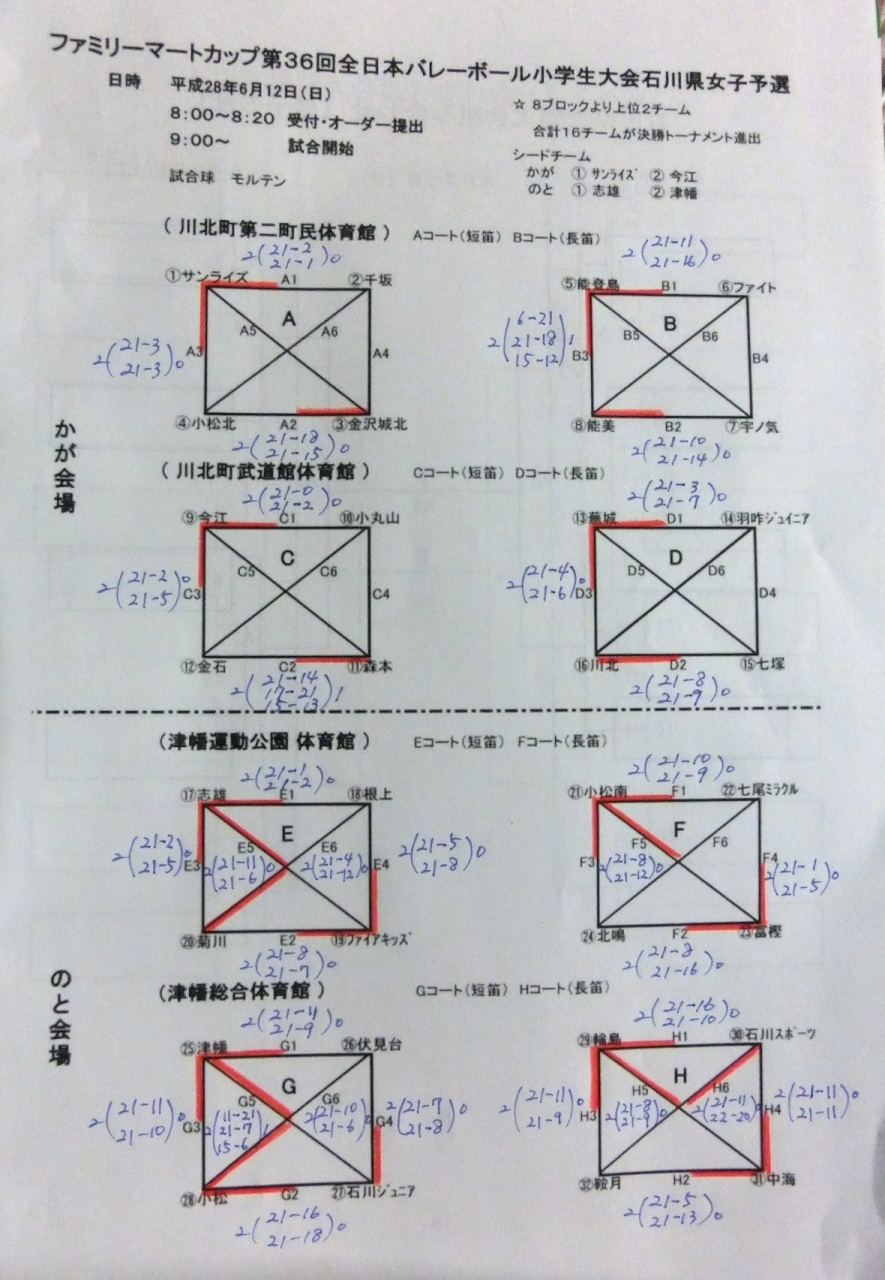 ファミリーマートカップ第36回全日本バレーボール小学生大会石川県女子予選
日時 平成28年6月12日(日)
8:00～8:20 受付・オーダー提出
9:00～ 試合開始
試合球 モルテン
☆ 8ブロックより上位2チーム
合計16チームが決勝トーナメント進出
シードチーム
かが ① サンライズ ② 今江
のと ① 志雄 ② 津幡
かが会場
( 川北町第二町民体育館 ) Aコート(短笛) Bコート(長笛)
2(21-2 21-1)0
①サンライズ A1 ②千坂
A
A5 A6
2(21-3 21-3)0 A3 A4
④小松北 A2 ③金沢城北
2(21-18 21-15)0
2(21-11 21-16)0
⑤能登島 B1 ⑥ファイト
B
B5 B6
2(6-21 21-18 15-12)1 B3 B4
⑧能美 B2 ⑦宇ノ気
2(21-10 21-14)0
( 川北町武道館体育館 ) Cコート(短笛) Dコート(長笛)
2(21-0 21-2)0
⑨今江 C1 ⑩小丸山
C
C5 C6
2(21-2 21-5)0 C3 C4
⑫金石 C2 ⑪森本
2(21-14 17-21 15-13)1
2(21-3 21-7)0
⑬蕪城 D1 ⑭羽咋ジュイニア
D
D5 D6
2(21-4 21-6)0 D3 D4
⑯川北 D2 ⑮七塚
2(21-8 21-9)0
のと会場
(津幡運動公園 体育館 ) Eコート(短笛) Fコート(長笛)
2(21-1 21-2)0
⑰志雄 E1 ⑱根上
E
E5 E6
2(21-2 21-5)0 E3 2(21-11 21-6)0 2(21-4 21-12)0 E4 2(21-5 21-8)0
⑳菊川 E2 ⑲ファイアキッズ
2(21-8 21-7)0
2(21-10 21-9)0
㉑小松南 F1 ㉒七尾ミラクル
F
F5 F6
F3 2(21-8 21-12)0 F4 2(21-1 21-5)0
㉔北鳴 F2 ㉓富樫
2(21-8 21-16)0
(津幡総合体育館 ) Gコート(短笛) Hコート(長笛)
2(21-4 21-9)0
㉕津幡 G1 ㉖伏見台
G
G5 G6
2(21-11 21-10)0 G3 2(11-21 21-7 15-6)1 2(21-10 21-6)0 G4 2(21-7 21-8)0
㉘小松 G2 ㉗石川ジュニア
2(21-16 21-18)0
2(21-16 21-10)0
㉙輪島 H1 ㉚石川スポーツ
H
H5 H6
2(21-11 21-9)0 H3 2(21-8 21-9)0 2(21-11 22-20)0 H4 2(21-11 21-11)0
㉜鞍月 H2 ㉛中海
2(21-5 21-13)0